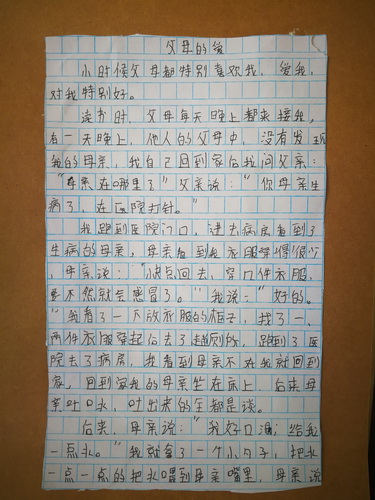 父母的爱
小时候父母都特别喜欢我，爱我，
对我特别好。
读书时，父母每天晚上都来接我，
有一天晚上，他人的父母中，没有发现
我的母亲，我自己回到家后我问父亲：
“母亲在哪里了”父亲说：“你母亲生
病了，在医院打针。”
我跑到医院门口，进去病房看到了
生病的母亲，母亲看到我衣服穿得很少
，母亲说：“快点回去，穿几件衣服，
要不然就会感冒了。”我说：“好的。
”我看了一下放衣服的柜子，找了一、
两件衣服穿起后去了厕所，跑到了医
院去了病房，我看到母亲不在我就回到
家，回到家我的母亲坐在床上，后来母
亲吐口水，吐出来的全都是痰。
后来，母亲说：“我好口渴，给我
一点水。”我就拿了一个小勺子，把水
一点一点的把水喂到母亲嘴里，母亲说